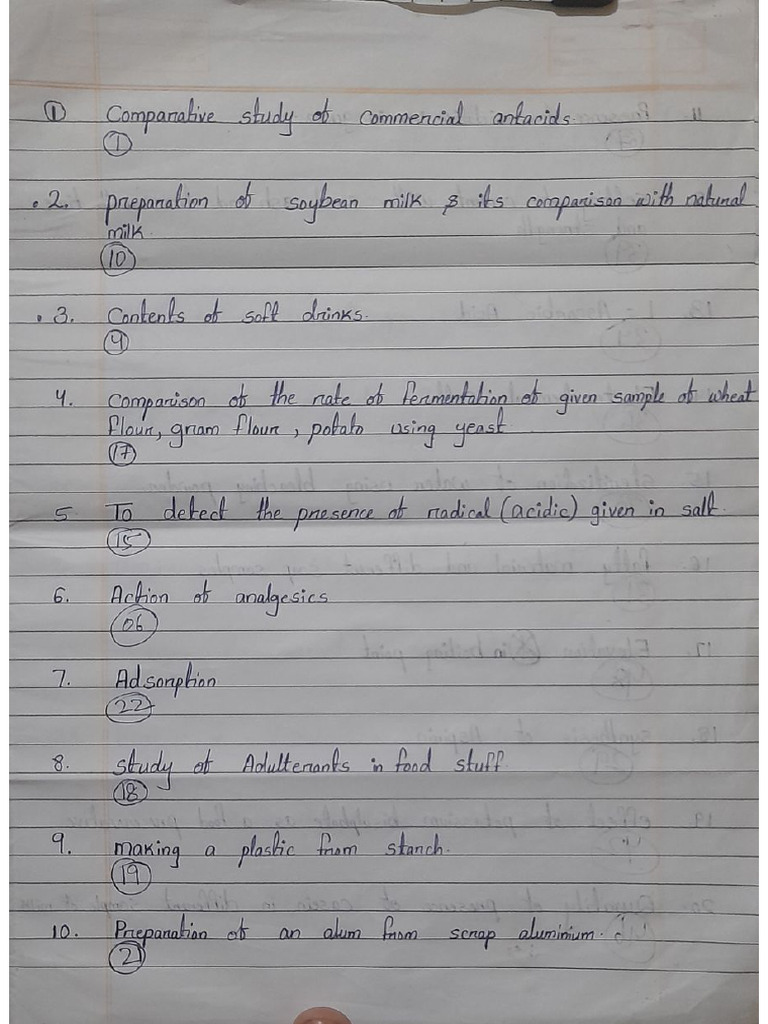 ① Comparative study of commercial antacids.
①
2. preparation of soybean milk & its comparison with natural
milk.
⑩
3. Contents of soft drinks.
④
4. comparison of the rate of fermentation of given sample of wheat
flour, gram flour, potato using yeast
⑰
5 To detect the presence of radical (acidic) given in salt.
⑮
6. Action of analgesics
06
7. Adsorption
22
8. study of Adulterants in food stuff.
⑱
9. making a plastic from starch.
⑲
10. Preparation of an alum from scrap aluminium.
21